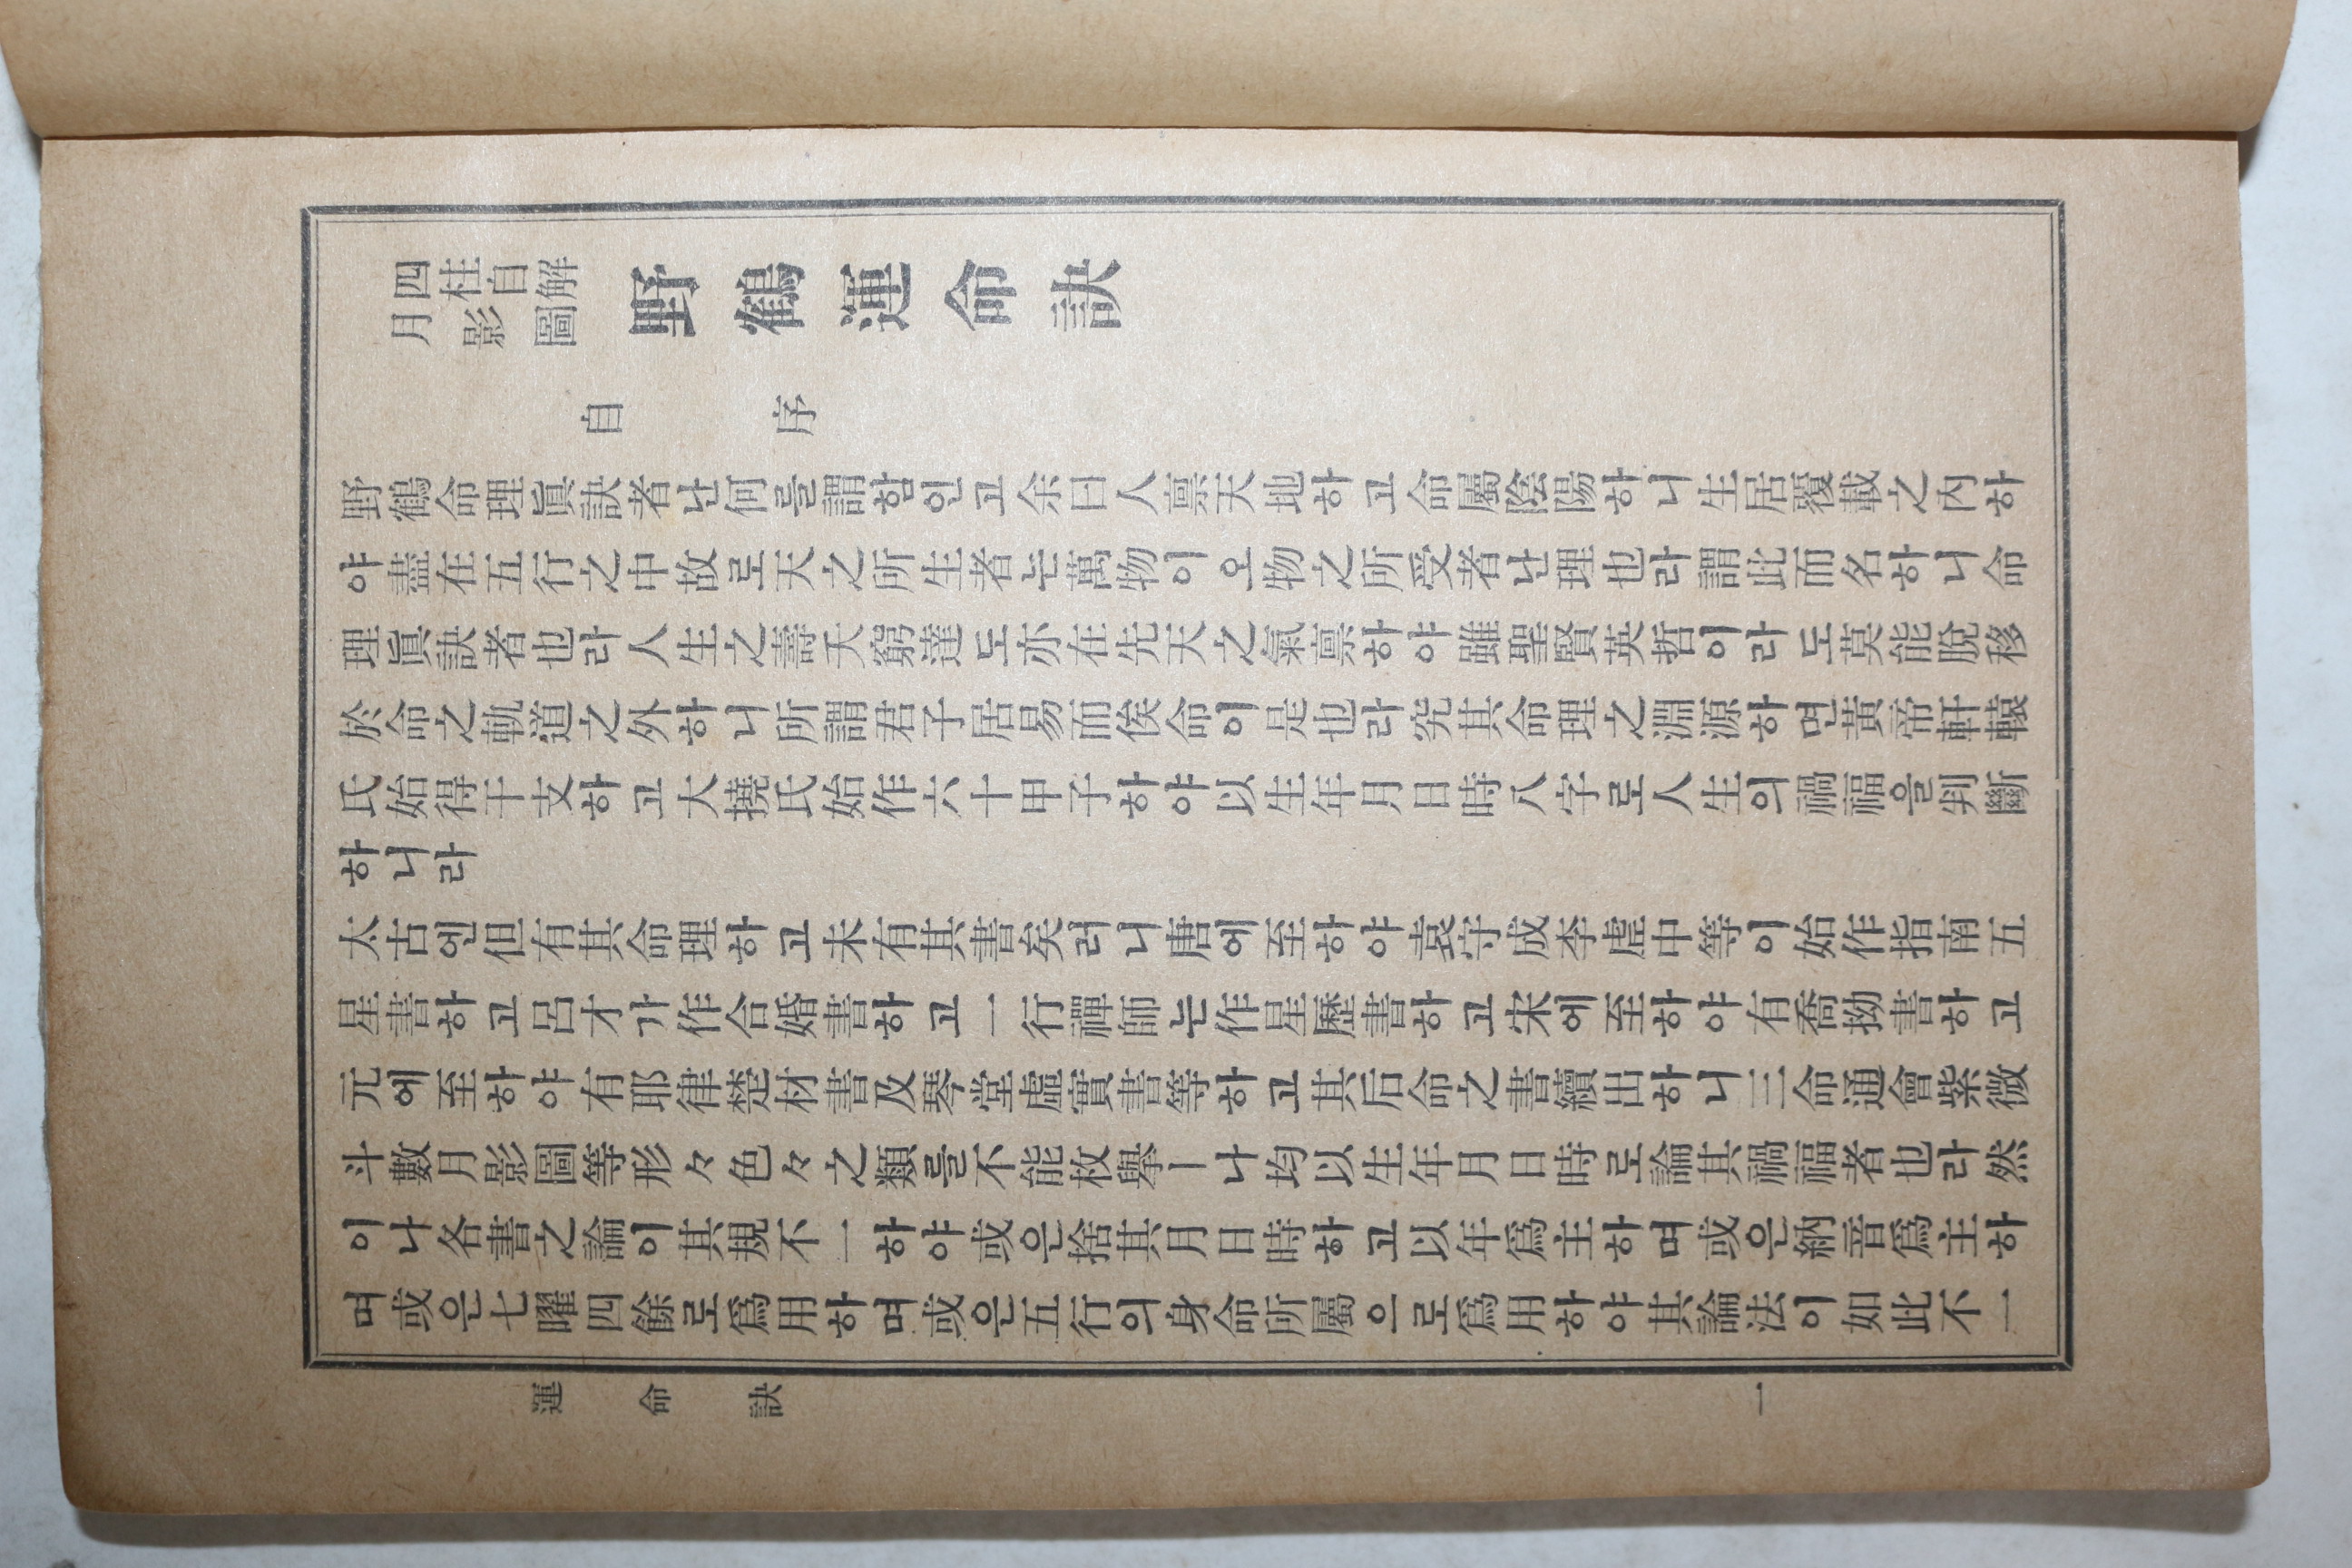 四柱自解
月影圖
野鶴運命訣
自序
野鶴命理眞訣者난何를謂함인고余曰人禀天地하고命屬陰陽하니生居覆載之內하
야盡在五行之中故로天之所生者는萬物이오物之所受者난理也라謂此而名하니命
理眞訣者也라人生之壽夭窮達도亦在先天之氣禀하야雖聖賢英哲이라도莫能脫移
於命之軌道之外하니所謂君子居易而俟命이是也라究其命理之淵源하면黃帝軒轅
氏始得干支하고大撓氏始作六十甲子하야以生年月日時八字로人生의禍福을判斷
하니라
太古엔但有其命理하고未有其書矣러니唐에至하야袁守成李虛中等이始作指南五
星書하고呂才가作合婚書하고一行禪師는作星歷書하고宋에至하야有喬拗書하고
元에至하야有耶律楚材書及琴堂虛實書等하고其后命之書續出하니三命通會紫微
斗數月影圖等形々色々之類를不能枚擧ㅣ나均以生年月日時로論其禍福者也라然
이나各書之論이其規不一하야或은捨其月日時하고以年爲主하며或은納音爲主하
며或은七曜四餘로爲用하며或은五行의身命所屬으로爲用하야其論法이如此不一
運命訣
一